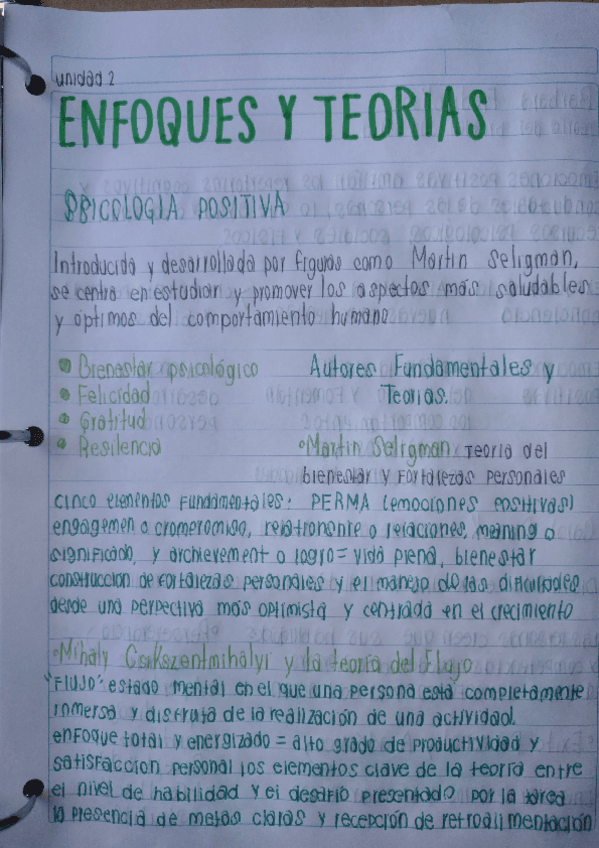 unidad 2
ENFOQUES Y TEORIAS
PSICOLOGIA POSITIVA
Introducida y desarrollada por figuras como Martin Seligman,
se centra en estudiar y promover los aspectos más saludables
y optimos del comportamiento humano
Bienestar psicológico
Felicidad
Gratitud
Resilencia
Autores Fundamentales y
Teorias.
Martin Seligman Teoria del
bienestar y Fortalezas personales
cinco elementos Fundamentales: PERMA (emociones positivas)
engagemen o cromeromido, relatronente o relaciones, meaning o
significado, y archievement o logro = vida plena, bienestar
construccion de fortalezas personales y el manejo de las dificultades
desde una perpectiva más optimista y centrada en el crecimiento
Mihaly Csikszentmihalyi y la teoria del Flujo
"Flujo" estado mental en el que una persona está completamente
inmersa y disfruta de la realización de una actividad.
enfoque total y energizado = alto grado de productividad y
satisfaccion personal los elementos clave de la teoria entre
el nivel de habilidad y el desafio presentado por la tarea
la presencia de metas claras y recepción de retroalimentación